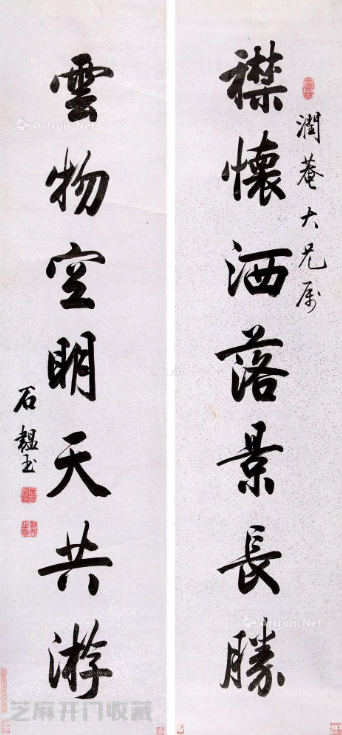 潤菴大兄属
襟懷洒落景長勝
雲物空明天共游
石韞玉
Artron.Net
Artron.Net
芝麻开门收藏